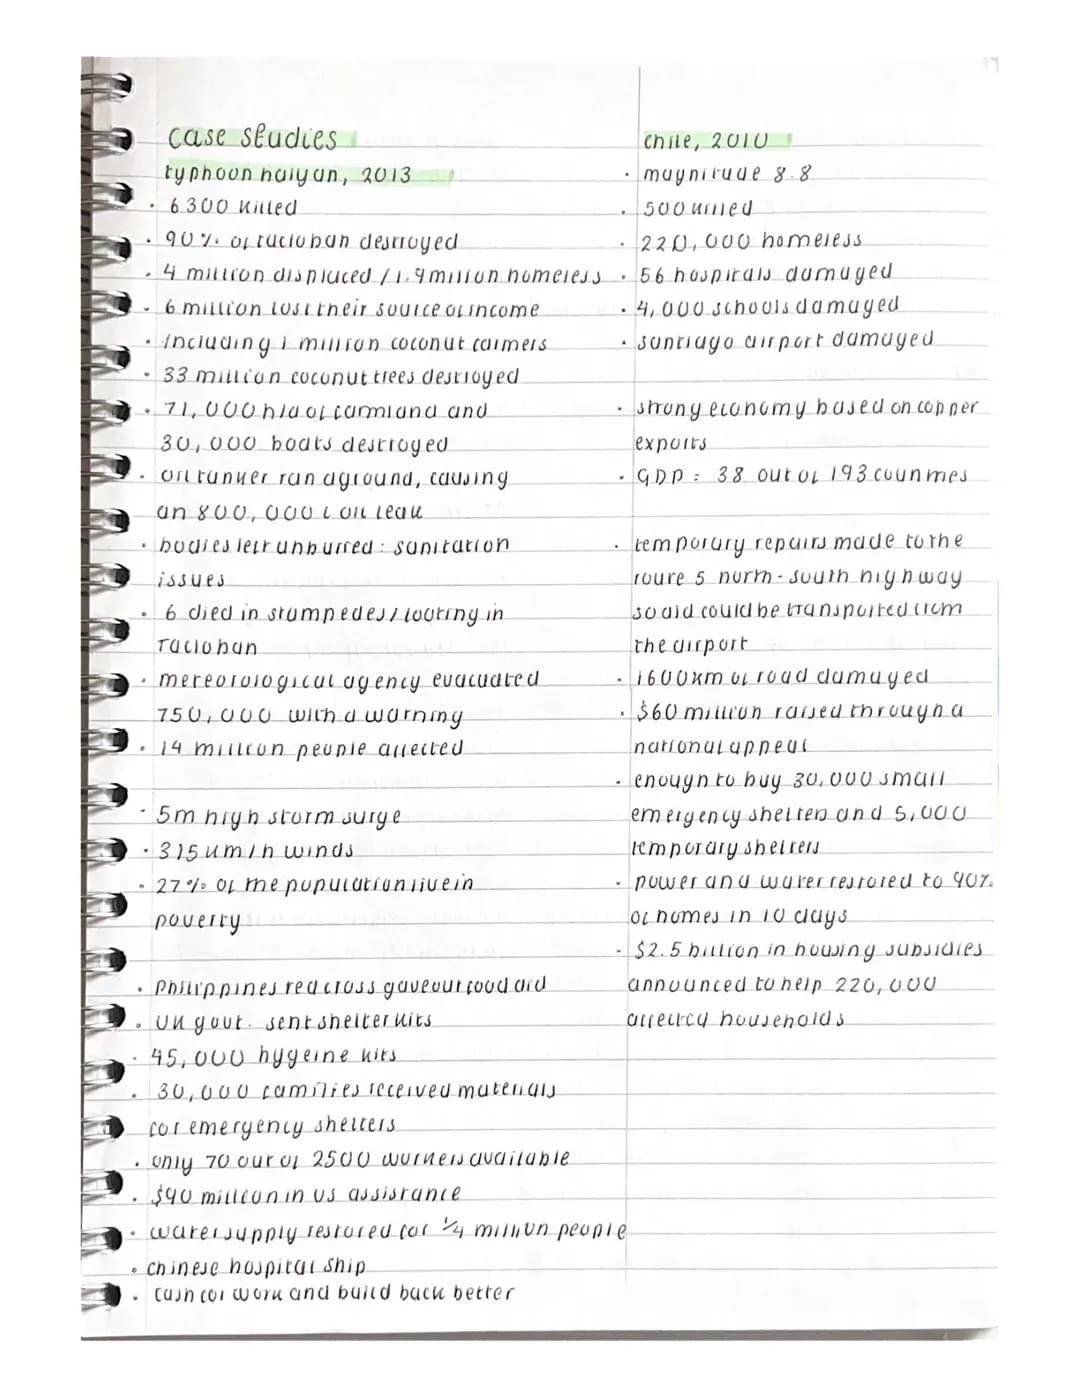 case studies
typhoon haiyan, 2013
· 6300 killed
· 90% of tacloban destroyed
· 4 million displaced / 1.9 million homeless
· 6 million lost their source of income
· including 1 million coconut farmers
· 33 million coconut trees destroyed
· 71,000 h/a of farmland and
30,000 boats destroyed
· oil tanker ran aground, causing
an 800,000 L oil leak
· bodies left unburred: sanitation
issues
· 6 died in stampedes / looting in
Tacloban
· meteorological agency evacuated
750,000 with a warning
· 14 million people affected
· 5m high storm surge
· 315 km/h winds
· 27% of the population live in
poverty
· Philippines red cross gave out food aid
· UK govt. sent shelter kits
· 45,000 hygeine kits
· 30,000 families received materials
for emergency shelters
· only 70 out of 2500 workers available
· $90 million in US assistance
· water supply restored for 1/4 million people
· chinese hospital ship
· cash for work and build back better
chile, 2010
· magnitude 8.8
· 500 killed
· 220,000 homeless
· 56 hospitals damaged
· 4,000 schools damaged
· santiago airport damaged
· strong economy based on copper
exports
· GDP = 38 out of 193 countries
· temporary repairs made to the
route 5 north-south highway
so aid could be transported from
the airport
· 1600km of road damaged
· $60 million raised through a
national appeal
· enough to buy 30,000 small
emergency shelters and 5,000
temporary shelters
· power and water restored to 90%
of homes in 10 days
· $2.5 billion in housing subsidies
announced to help 220,000
affected households